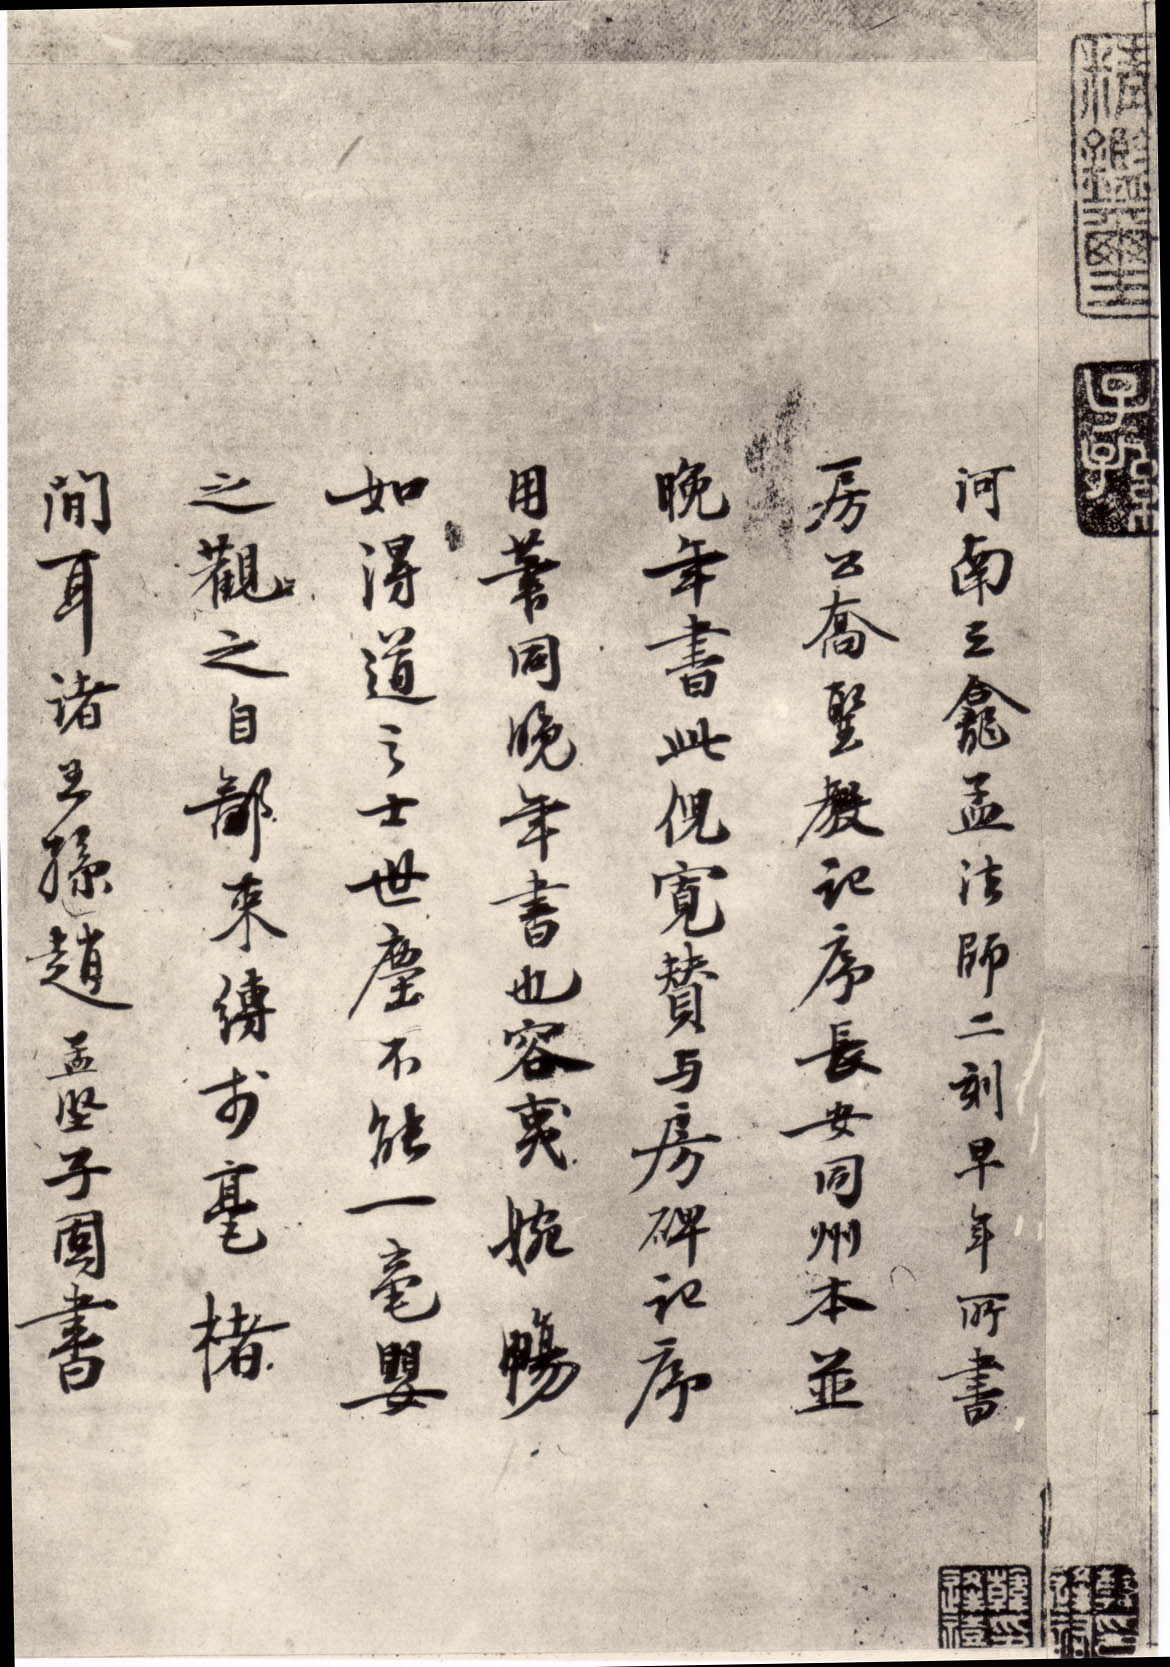 精鑑璽
河南三龕孟法師二刻早年所書
房公喬聖教記序長安同州本並
晚年書此倪寬贊与房碑記序
用筆同晚年書也容夷婉暢
如得道之士世塵不能一毫嬰
之觀之自鄙束縛於毫楮
間耳諸王孫趙孟堅子固書
韓逢禧印